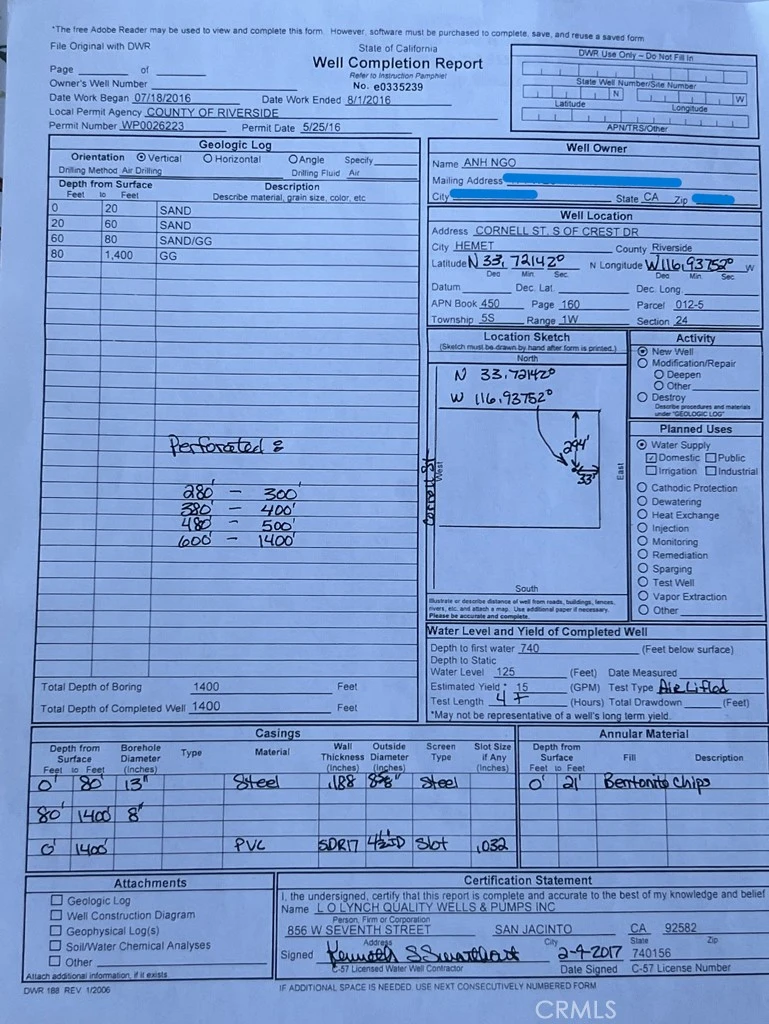 *The free Adobe Reader may be used to view and complete this form. However, software must be purchased to complete, save, and reuse a saved form
File Original with DWR
State of California
Well Completion Report
Refer to Instruction Pamphlet
No. e0335239
Page of
Owner's Well Number
Date Work Began 07/18/2016 Date Work Ended 8/1/2016
Local Permit Agency COUNTY OF RIVERSIDE
Permit Number WP0026223 Permit Date 5/25/16
DWR Use Only – Do Not Fill In
State Well Number/Site Number
N W
Latitude Longitude
APN/TRS/Other
Geologic Log
Orientation Vertical Horizontal Angle Specify
Drilling Method Air Drilling Drilling Fluid Air
Depth from Surface Description
Feet to Feet Describe material, grain size, color, etc
0 20 SAND
20 60 SAND
60 80 SAND/GG
80 1,400 GG
Perforated :
280' – 300'
380' – 400'
480' – 500'
600' – 1400'
Total Depth of Boring 1400 Feet
Total Depth of Completed Well 1400 Feet
Well Owner
Name ANH NGO
Mailing Address
City State CA Zip
Well Location
Address CORNELL ST, S OF CREST DR
City HEMET County Riverside
Latitude N 33.72142° N Longitude W116.93752° W
Deg Min. Sec. Deg. Min. Sec.
Datum Dec. Lat. Dec. Long.
APN Book 450 Page 160 Parcel 012-5
Township 5S Range 1W Section 24
Location Sketch
(Sketch must be drawn by hand after form is printed.)
North
N 33.72142°
W 116.93752°
294'
33'
Cornell St.
West
East
South
Illustrate or describe distance of well from roads, buildings, fences,
rivers, etc. and attach a map. Use additional paper if necessary.
Please be accurate and complete.
Activity
New Well
Modification/Repair
Deepen
Other
Destroy
Describe procedures and materials
under "GEOLOGIC LOG"
Planned Uses
Water Supply
Domestic Public
Irrigation Industrial
Cathodic Protection
Dewatering
Heat Exchange
Injection
Monitoring
Remediation
Sparging
Test Well
Vapor Extraction
Other
Water Level and Yield of Completed Well
Depth to first water 740 (Feet below surface)
Depth to Static
Water Level 125 (Feet) Date Measured
Estimated Yield * 15 (GPM) Test Type Air Lifted
Test Length 4 + (Hours) Total Drawdown (Feet)
*May not be representative of a well's long term yield.
Casings
Depth from Surface Feet to Feet Borehole Diameter (Inches) Type Material Wall Thickness (Inches) Outside Diameter (Inches) Screen Type Slot Size if Any (Inches)
0' 80' 13" Steel .188 8 5/8" Steel
80' 1400' 8"
0' 1400' PVC SDR17 4½ID Slot .032
Annular Material
Depth from Surface Feet to Feet Fill Description
0' 21' Bentonite Chips
Attachments
Geologic Log
Well Construction Diagram
Geophysical Log(s)
Soil/Water Chemical Analyses
Other
Attach additional information, if it exists.
Certification Statement
I, the undersigned, certify that this report is complete and accurate to the best of my knowledge and belief
Name L O LYNCH QUALITY WELLS & PUMPS INC
Person, Firm or Corporation
856 W SEVENTH STREET SAN JACINTO CA 92582
Address City State Zip
Signed Kenneth S Swarthout 2-4-2017 740156
C-57 Licensed Water Well Contractor Date Signed C-57 License Number
DWR 188 REV. 1/2006
IF ADDITIONAL SPACE IS NEEDED, USE NEXT CONSECUTIVELY NUMBERED FORM
CRMLS